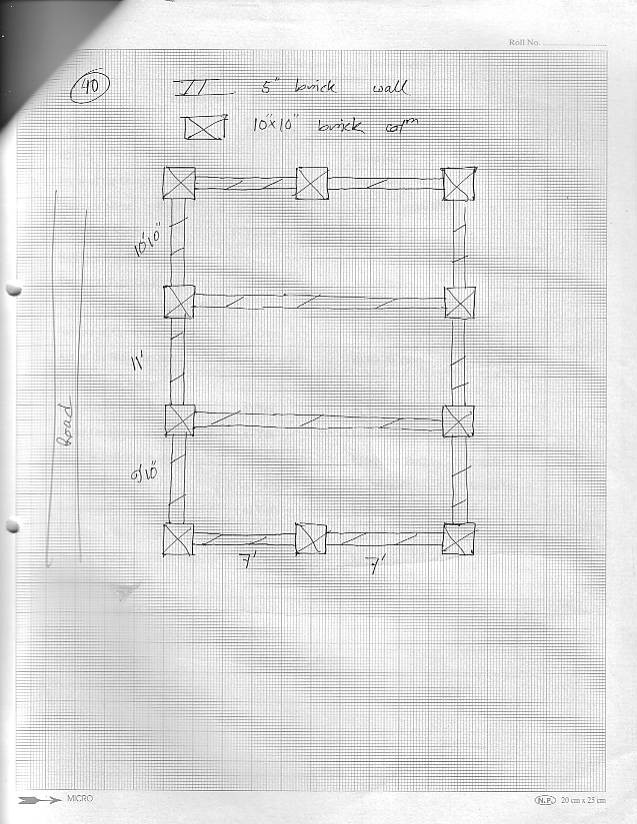 Roll No.
40
5" brick wall
10"x10" brick colm
10'10"
11'
Road
9'10"
7' 7'
MICRO
N.P. 20 cm x 25 cm